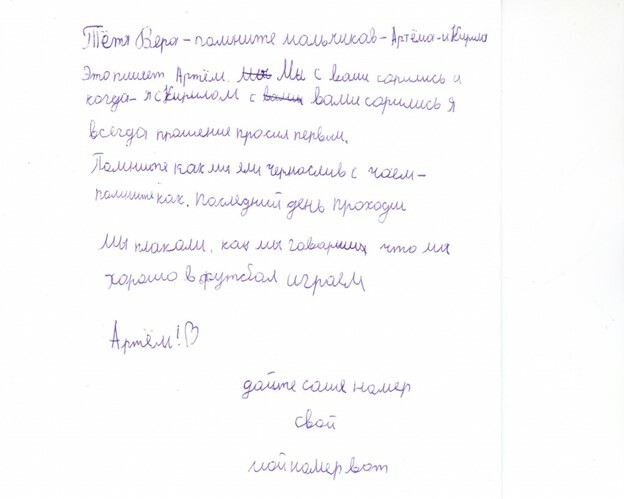 Тётя Вера – помните мальчиков – Артёма – и Кирила
Это пишет Артём. Мы Мы с вами сорились и
когда – я с Кирилом с вами вами сорились я
всегда прошение просил первым.
Помните как мы ели чернослив с чаем –
помните как. Последний день проходи
мы плакали. как мы говарили что ми
хорошо в футбол играем
Артём!♡
дайте саше намер
свой
мой намер вот